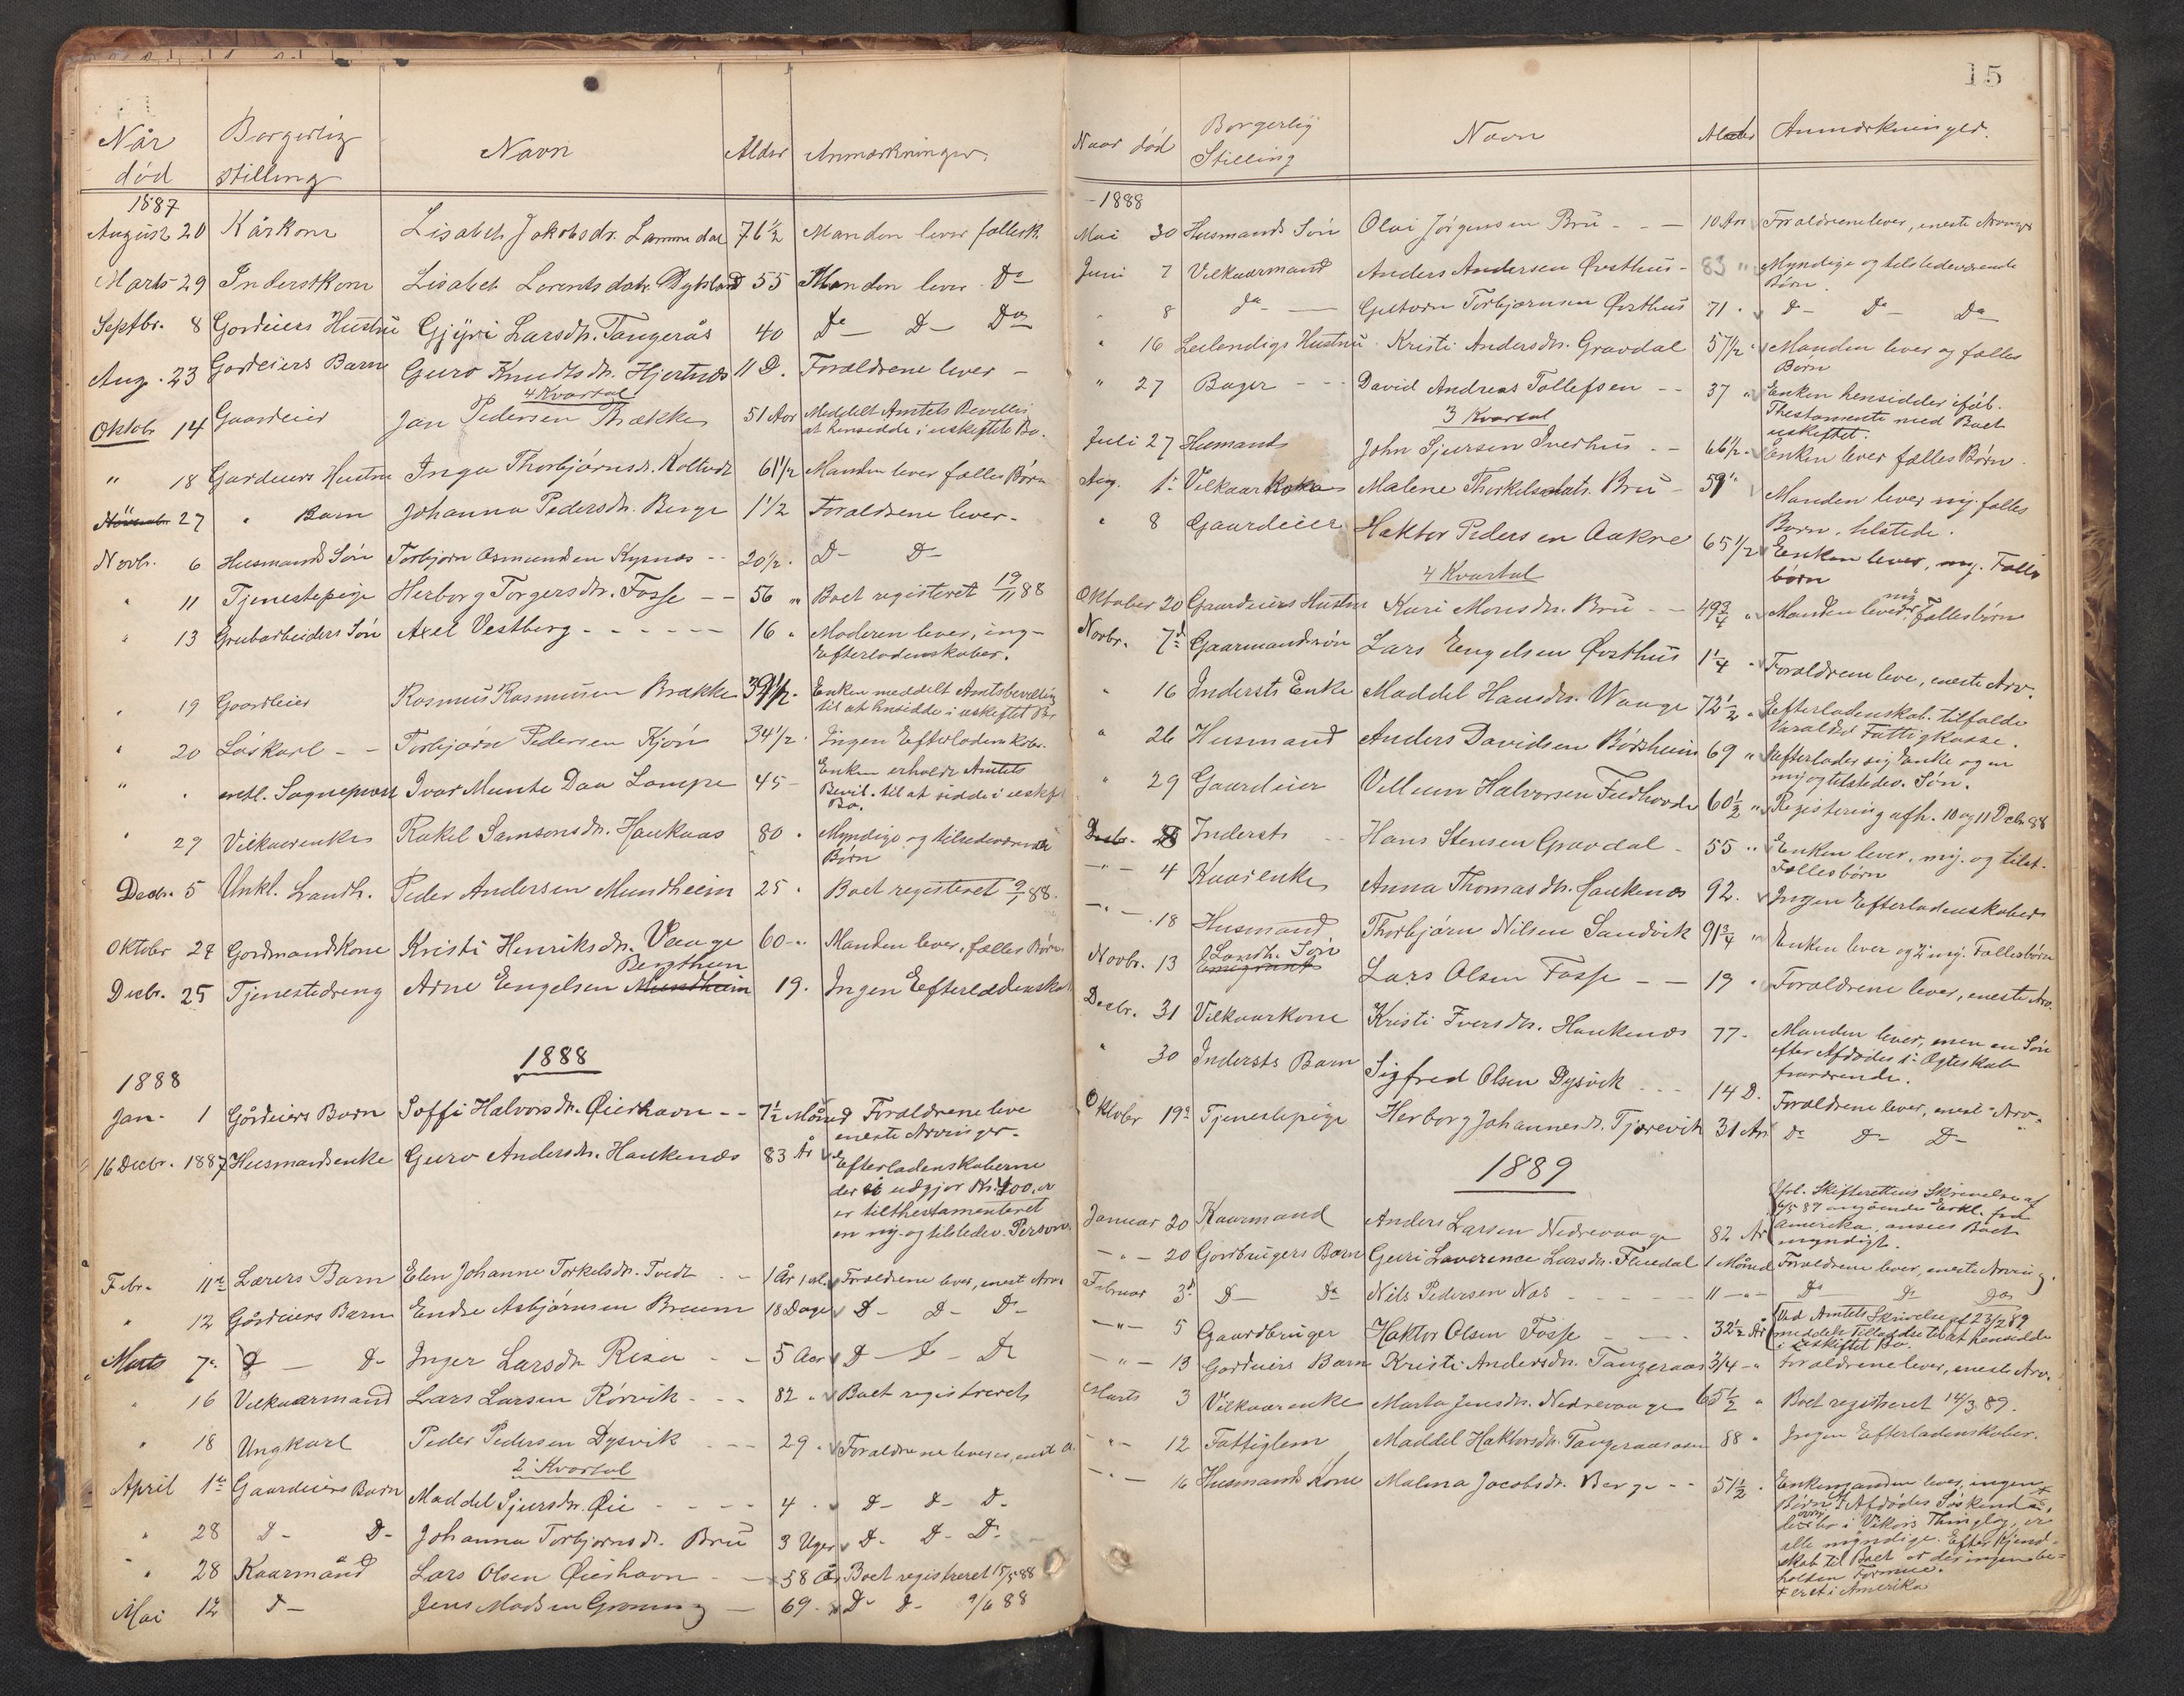 Når død
Borgerlig stilling
Navn
Alder
Anmærkninger
1887
August 20 Kårkone Lisabeth Jakobsdr. Lammedal 76½ Manden lever fællesb.
Marts 29 Inderstkone Lisabet Lorentsdatr. 55 Manden lever Do
Septbr. 8 Gordeiers Hustru Gjyri Larsdtr. Tangerås 40 Do D- Do
Aug. 23 Gordeiers Barn Guro Knudtsdr. Hjertnes 11 D. Forældrene lever -
4 Kvartal
Oktobr 14 Gaardeier Jan Pedersen Brække 51 Aar Meddelt Amtets Bevilling
at hensidde i uskiftet Bo.
" 18 Gardeiers Hustru Inga Thorbjørnsdr. 61½ Manden lever fælles Børn
27 " Barn Johanna Pedersdr. Berge 1½ Forældrene lever -
Novbr. 6 Husmands Søn Torbjørn Osmundsen Kysnæs -- 20½ . D- D-
" 11 Tjenestepige Herborg Torgersdr. Fosse -- 56 " Boet registeret 19/11 88
" 13 Grubarbeiders Søn Axel Vestberg - - - - - - 16 " Moderen lever, ing-
Efterladenskaber.
" 19 Gaardeier Rasmus Rasmusen Brække 39½ . Enken meddelt Amtsbevilling
til at hensidde i uskiftet Bo
" 20 Løskarl - - Torbjørn Pedersen Kjøn 34½ . Ingen Efterladenskabr.
" " Sogneprest Ivar Munte Daa Lampe 45 - Enken erholdt Amtets
Bevil. til at sidde i uskift
Bo.
" 29 Vilkaarenke Rakel Samsonsdr. Haukaas 80 " Myndige og tilstedeværende
Børn
Decbr. 5 Unkl. Landh. Peder Andersen Mundheim 25 " Boet registeret 9/1 88.
Oktobr 24 Gordmandkone Kristi Henriksdr. Vaage 60 - " Manden lever, fælles Børn.
Bergthun
Decbr. 25 Tjenestedreng Arne Engelsen Mundheim 19. Ingen Efterladenskab
1888
1888
Jan- 1 Gårdeiers Barn Soffi Halvorsdr. Øierhavn -- 7½ Måned Forældrene live
eneste Arvinger -
16 Decbr. 1887 Husmandsenke Guro Andersdr. Haukenæs 83 År Efterladenskaberne
der ei udgjør Kr. 400,
er tilthestamenteret
en myg. og tilstedev. Person.
Febr. 11te Lærers Barn Elen Johanne Torkelsdr. Tvedt - - 1 År Forældrene lever, enest Arv.
" 12 Gårdeiers Barn Endre Asbjørnsen 18 Dage D- D- Do
Marts 7de D - D- Inger Larsdr. - - 5 Aar D- D- Do
" 16 Velkaarmand Lars Larsen Rørvik - - - 82 " Boet registreret
" 18 Ungkarl Peder Pedersen Dysvik - - - 29 . Forældrene lever,
2 Kvartal
April 1te Gaardeiers Barn Maddel Sjursdr. Øie - - - - 4 . " D- D- D-
" 28 D- D- Johanna Torbjørnsdr. Bru 3 Uger D- D- D-
" 28 Kaarmand Lars Olsen Øierhavn - - 58 År Boet registreret 15/5 88
Mai 12 D- Jens Madsen Grønning - 69 - D- D- 9/6 88
15
Naar død
Borgerlig Stilling
Navn
Alder
Anmærkninger.
- 1888
Mai 30 Husmands Søn Olai Jørgensen Bru - - - 10 Aar Forældrene lever, eneste Arvinger
Juni 7 Velkaarmand Anders Andersen Øvsthus - 83 " Myndige og tilstedeværende
Børn.
" 8 Do - Torbjørnsen Øvsthus 71 . D- Do Do
" 16 Leilendigs Hustru . Kristi Andersdtr. Gravdal 57½ " Manden lever og fælles
Børn
" 27 Bager - - - David Andreas Tollefsen - - 37 " Enken hensidder iføl.
3 Kvartal
Thestamente med Boet
uskiftet.
Juli 27 Husmand John Sjursen Iverhus - - 66½ . Enken lever fælles Børn.
Aug. 1. Vilkaarkone Malene Thorkelsdatr. Bru - 59 " Manden lever myg. fælles
Børn, tilstede.
" 8 Gaardeier Haktor Pedersen Aakre 65½ Enken lever, myg. Fælles
børn
4 Kvartal
Oktober 20 Gaardeiers Hustru Kari Monsdr. Bru - - 49¾ " Manden lever, myg Fællesbørn
Novbr. 7d Gaarmandssøn Lars Engelsen Øvsthus 1¼ " Forældrene leve, eneste Arv.
" 16 Inderst Enke Maddel Hansdr. Waage 72½ " Efterladenskab. tilfalde
Varaldsø Fattigkasse.
" 26 Husmand Anders Davidsen Børsheim 69 " Efterlader sig Enke og en
myg og tilstedev. Søn.
" 29 Gaardeier Vellum Halvorsen Fedhovde 60½ " Registering afh. 10 og 11 Decbr 88
Decbr. Inderst - - Hans Stensen Gravdal - 55 " Enken lever, myg. og tilst.
Fællesbørn
- " - 4 Kaarenke Anna Thomasdtr. Haukenæs 92. Ingen Efterladenskaber
- " - 18 Husmand Thorbjørn Nilsen Sandvik 91¾ " Enken lever og 2 myg. Fællesbørn
Landh. Søn
Novbr. 13 Emigrant Lars Olsen Fosse - - 19 " Forældrene lever, eneste Arv.
Decbr. 31 Velkaarkone Kristi Iversdtr. Haukenæs 77 - Manden lever, men en Søn
efter Afdødes 1. Ægteskab
fraværende.
" 30 Indersts Barn Sigfred Olsen Dysvik - - - 14 D. Forældrene lever, enest. Arv.
Oktobr 19. Tjenestepige Herborg Johannesdr. Tjærevik 31 Aar Do D- D-
1889
Januar 20 Kaarmand Anders Larsen Nedrevaage 82 År Iføl. Skifterettens Skrivelse af
6/5 89 angående Erkl. fra
Amerika, ansees Boet
myndigt.
- " - 20 Gordbrugers Barn Guri Laverence Larsdtr. Flusdal 1 Måned Forældrene lever, eneste Arving.
Februar 3d D- Do Nils Pedersen Nes - - - - - 11 - " - Do Do Do
- " - 5 Gaardbruger Haktor Olsen Fosse - - - 32½ År Ved Amtets Skrivelse af 23/2 89
meddelt Tilladse til at hensidde
i uskiftet Bo.
- " - 13 Gordeiers Barn Kristi Andersdtr. Tangeraas 3/4 - " Forældrene lever, eneste Arv.
Marts 3 Vilkaarenke Marta Jensdtr. Nedrevaage 65½ " Boet registreret 14/3 89.
- " - 12 Fattiglem Maddel Haktorsdtr. Tangeraasasen 88 " Ingen Efterladenskaber.
- " - 16 Husmands Kone Malena Jacobsdr. Berge - - 51½ . Enkemanden lever, ingen
Børn. Afdødes Søskende,
der bo i Vikørs Thinglag, er
alle myndige. Efter Kjend-
skab til Boet er der ingen be-
holden Formue.
+ eret i Amerika